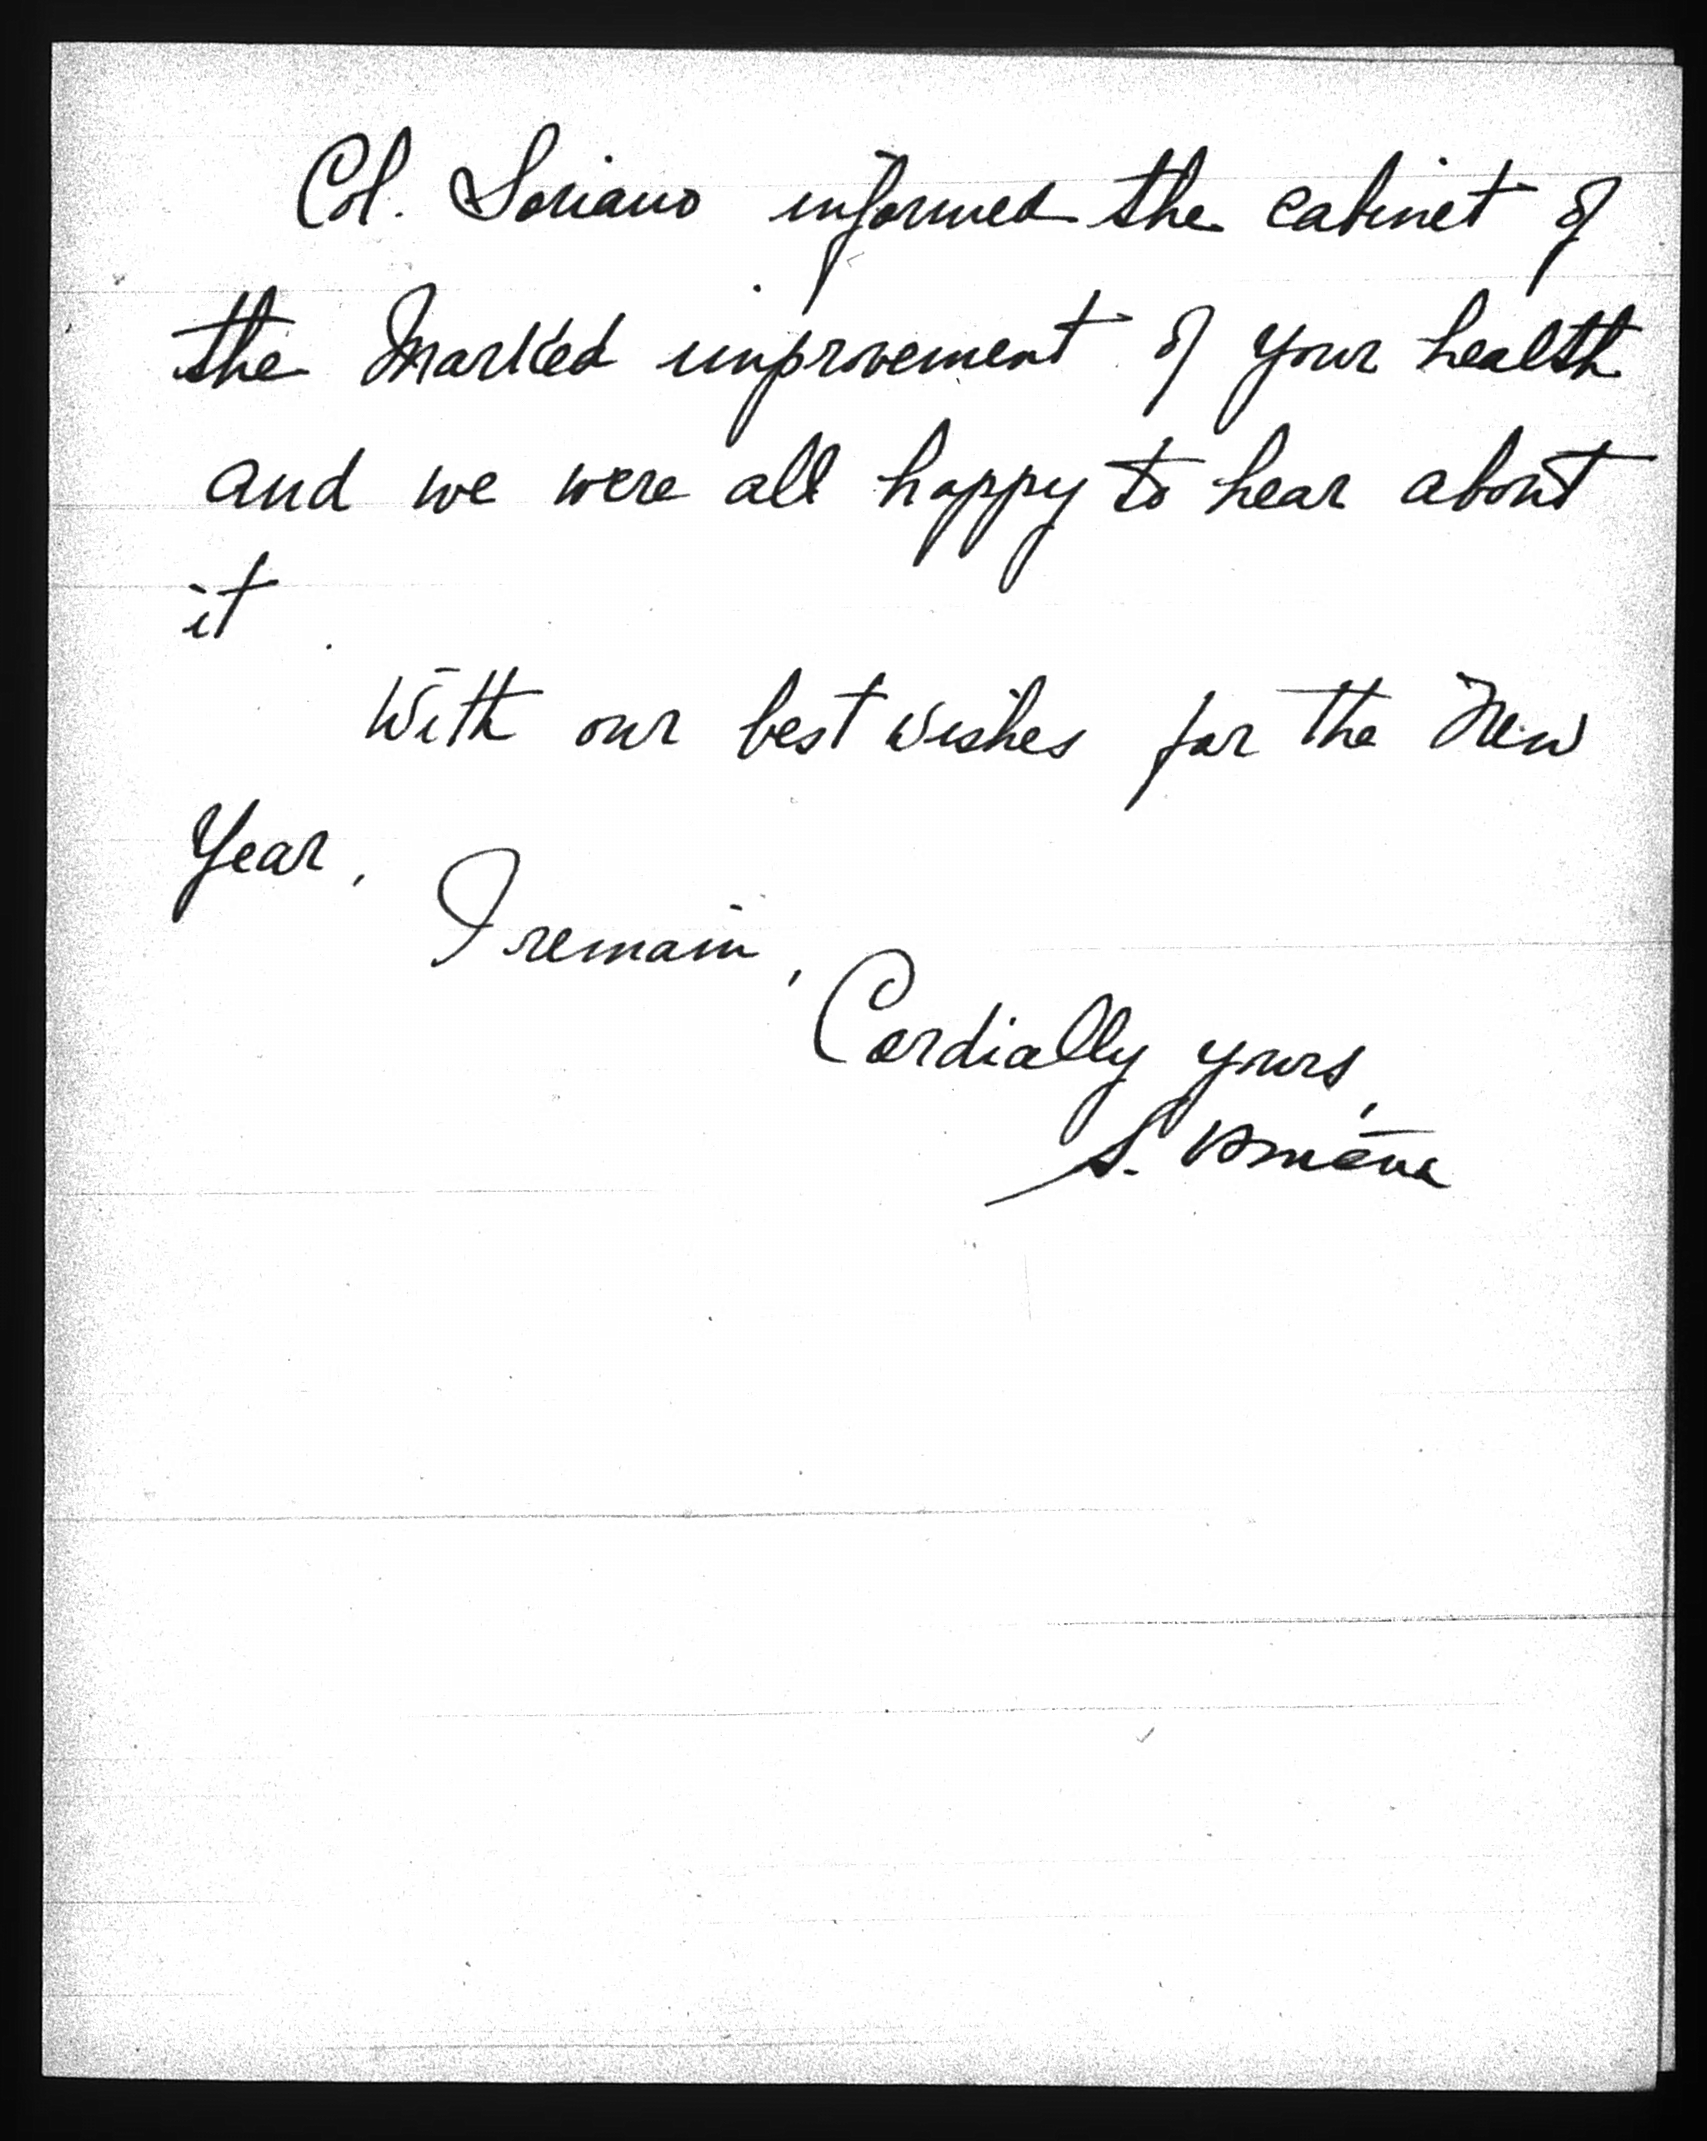 Col. Soriano informed the cabinet of
the Marked improvement of your health
and we were all happy to hear about
it.
With our best wishes for the New
Year,
I remain,
Cordially yours,
S. Osmeña